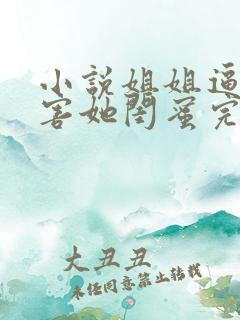 小説姐姐逼
害她閏蜜完
大丑丑
未经同意禁止转载